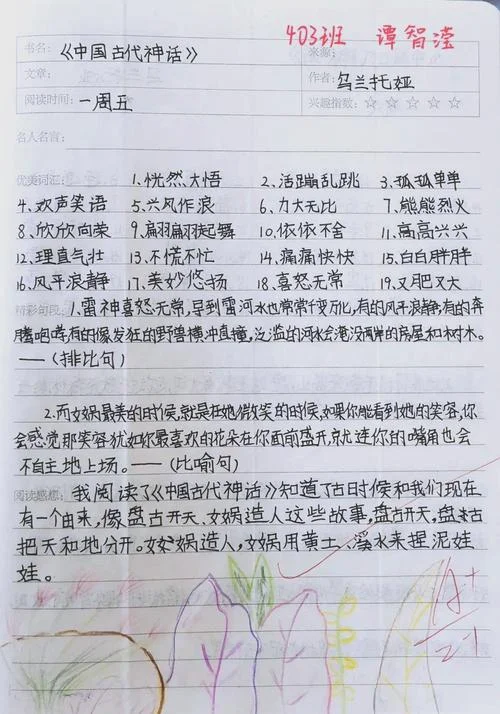 403班 谭智滢
书名：《中国古代神话》 来源：
文章： 作者：乌兰托娅
阅读时间：一周五 兴趣指数：☆ ☆ ☆ ☆ ☆
名人名言：
优美词汇： 1、恍然大悟 2、活蹦乱跳 3、孤孤单单
4、欢声笑语 5、兴风作浪 6、力大无比 7、熊熊烈火
8、欣欣向荣 9、翩翩起舞 10、依依不舍 11、高高兴兴
12、理直气壮 13、不慌不忙 14、痛痛快快 15、白白胖胖
16、风平浪静 17、美妙悠扬 18、喜怒无常 19、又肥又大
精彩句段： 1、雷神喜怒无常，导到雷河水也常常千变万化，有的风平浪静，有的奔
腾咆哮，有的像发狂的野兽横冲直撞，泛滥的河水会淹没两岸的房屋和树木。
——（排比句）
2、而女娲最美的时候，就是在她微笑的时候，如果你能看到她的笑容，你
会感觉那笑容犹如你最喜欢的花朵在你面前盛开，就连你的嘴角也会
不自主地上场。——（比喻句）
阅读感想：我阅读了《中国古代神话》知道了古时候和我们现在
有一个由来，像盘古开天、女娲造人这些故事，盘古开天，盘古
把天和地分开。女娲造人，女娲用黄土、溪水来捏泥娃
娃。
A+